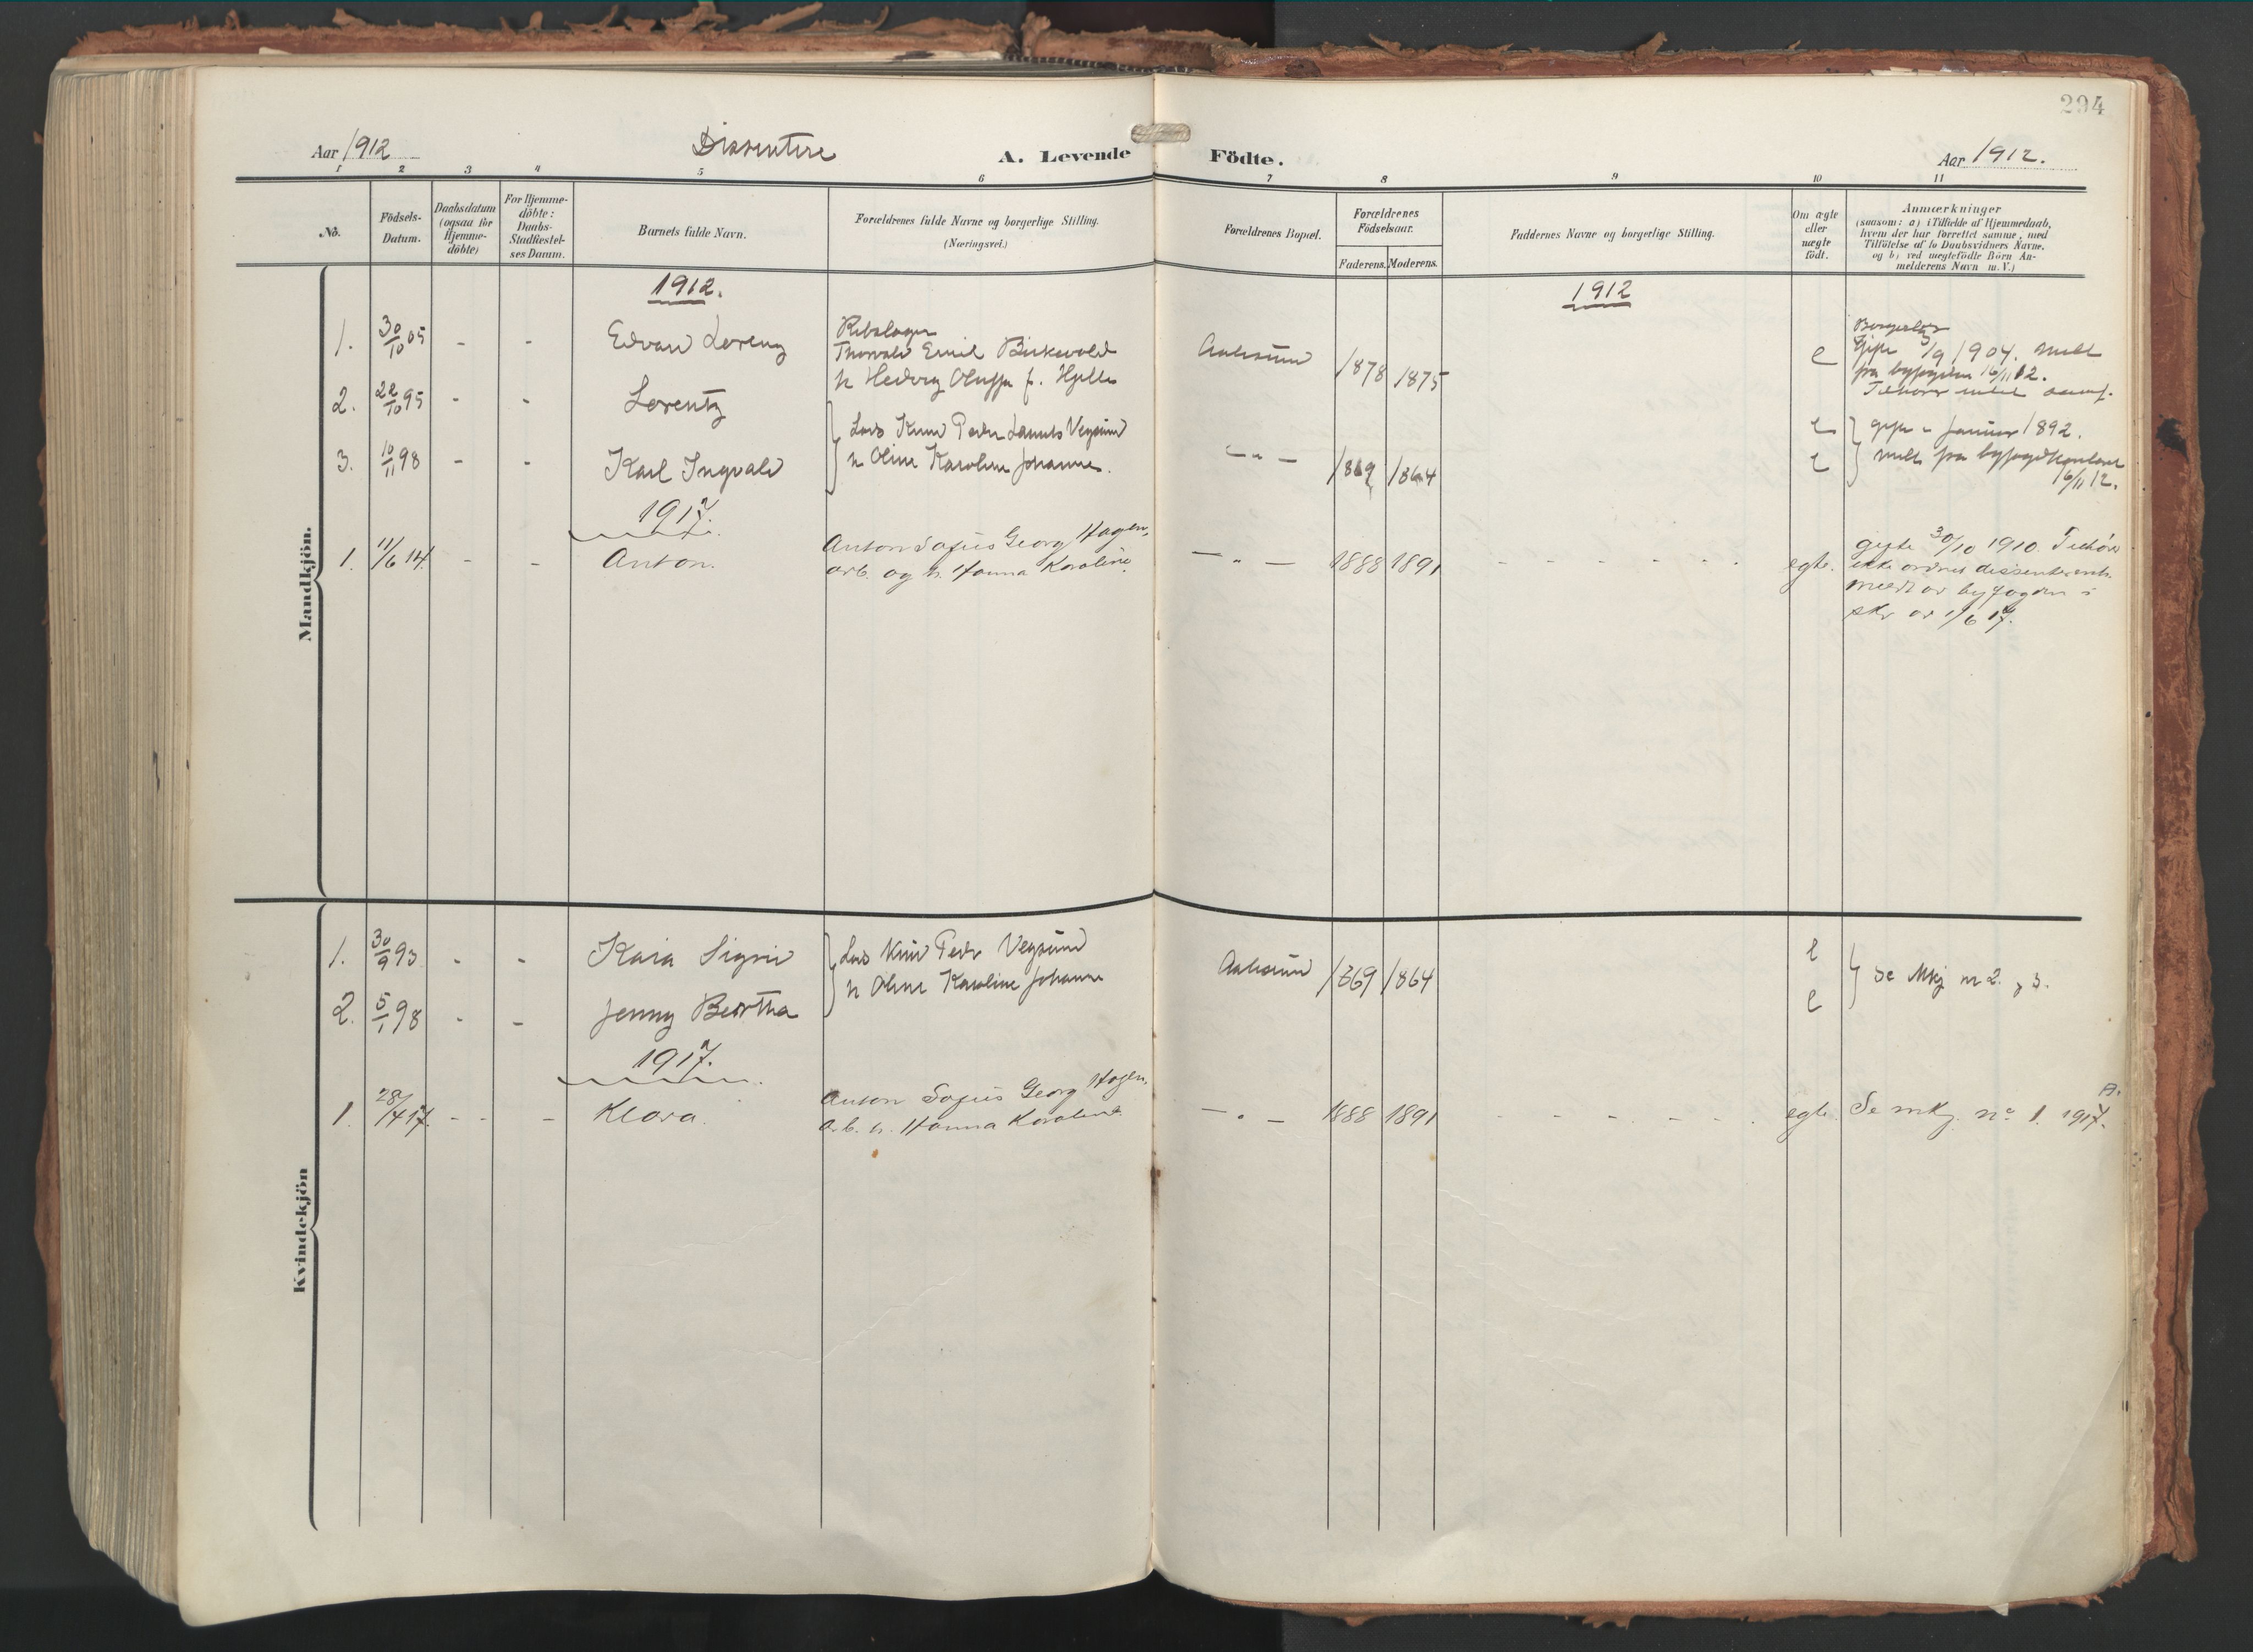 294
Aar 1912 Dissentere A. Levende Födte. Aar 1912.
1 2 3 4 5 6 7 8 9 10 11
No.
Födsels-
Datum.
Daabsdatum
(ogsaa för
Hjemme-
döbte)
For Hjemme-
döbte:
Daabs-
Stadfæstel-
ses Datum.
Barnets fulde Navn.
Forældrenes fulde Navne og borgerlige Stilling.
(Næringsvei.)
Forældrenes Bopæl.
Forældrenes
Födselsaar.
Faderens. Moderens.
Faddernes Navne og borgerlige Stilling.
Om ægte
eller
uægte
födt.
Anmærkninger
(saasom: a) i Tilfælde af Hjemmedaab,
hvem der har forrettet samme, med
Tilföielse af to Daabsvidners Navne,
og b) ved uægtefödte Börn An-
melderens Navn m. V.)
Mandkjön.
1912. 1912
1. 30/10 05 - - Edvard Lorenz
Rebslager
Thorvald Emil Birkevold
h Hedvig Oluffa f. Hjelle
Aalesund 1878 1875 e
Borgerlig
Gift 3/9 1904. Meldt
fra byfogden 16/11 12.
2. 22/10 95 - - Lorentz
Lars Knud Peder Vegsund
h Oline Karoline Johanne.
e gift i Januar 1892.
3. 10/11 98 - - Karl Ingvald
- " - 1869 1864 e
meldt fra byfogdkontoret
16/11 12.
1917.
1. 11/6 14. - - Anton.
Anton Sofus Georg Hagen,
arb. og h. Hanna Karoline.
- " - 1888 1891 - - - - - - egte.
gifte 30/10 1910. Tilhører
ikke ordnet dissentermh.
meldt av byfogden i
skr av 1/6 17.
Kvindekjön
1. 30/9 93 - - Kaia Signe
Lars Knud Peder Vegsund
h Oline Karoline Johanne
Aalesund 1869 1864 e
e
Se Mkj nr 2 og 3.
2. 5/1 98 - - Jenny Bertha
1917.
1. 28/4 17. - - - Klara.
Anton Sofus Georg Hagen,
arb. h. Hanna Karoline
- " - 1888 1891 - - - - - egte. Se mkj. no 1. 1917.